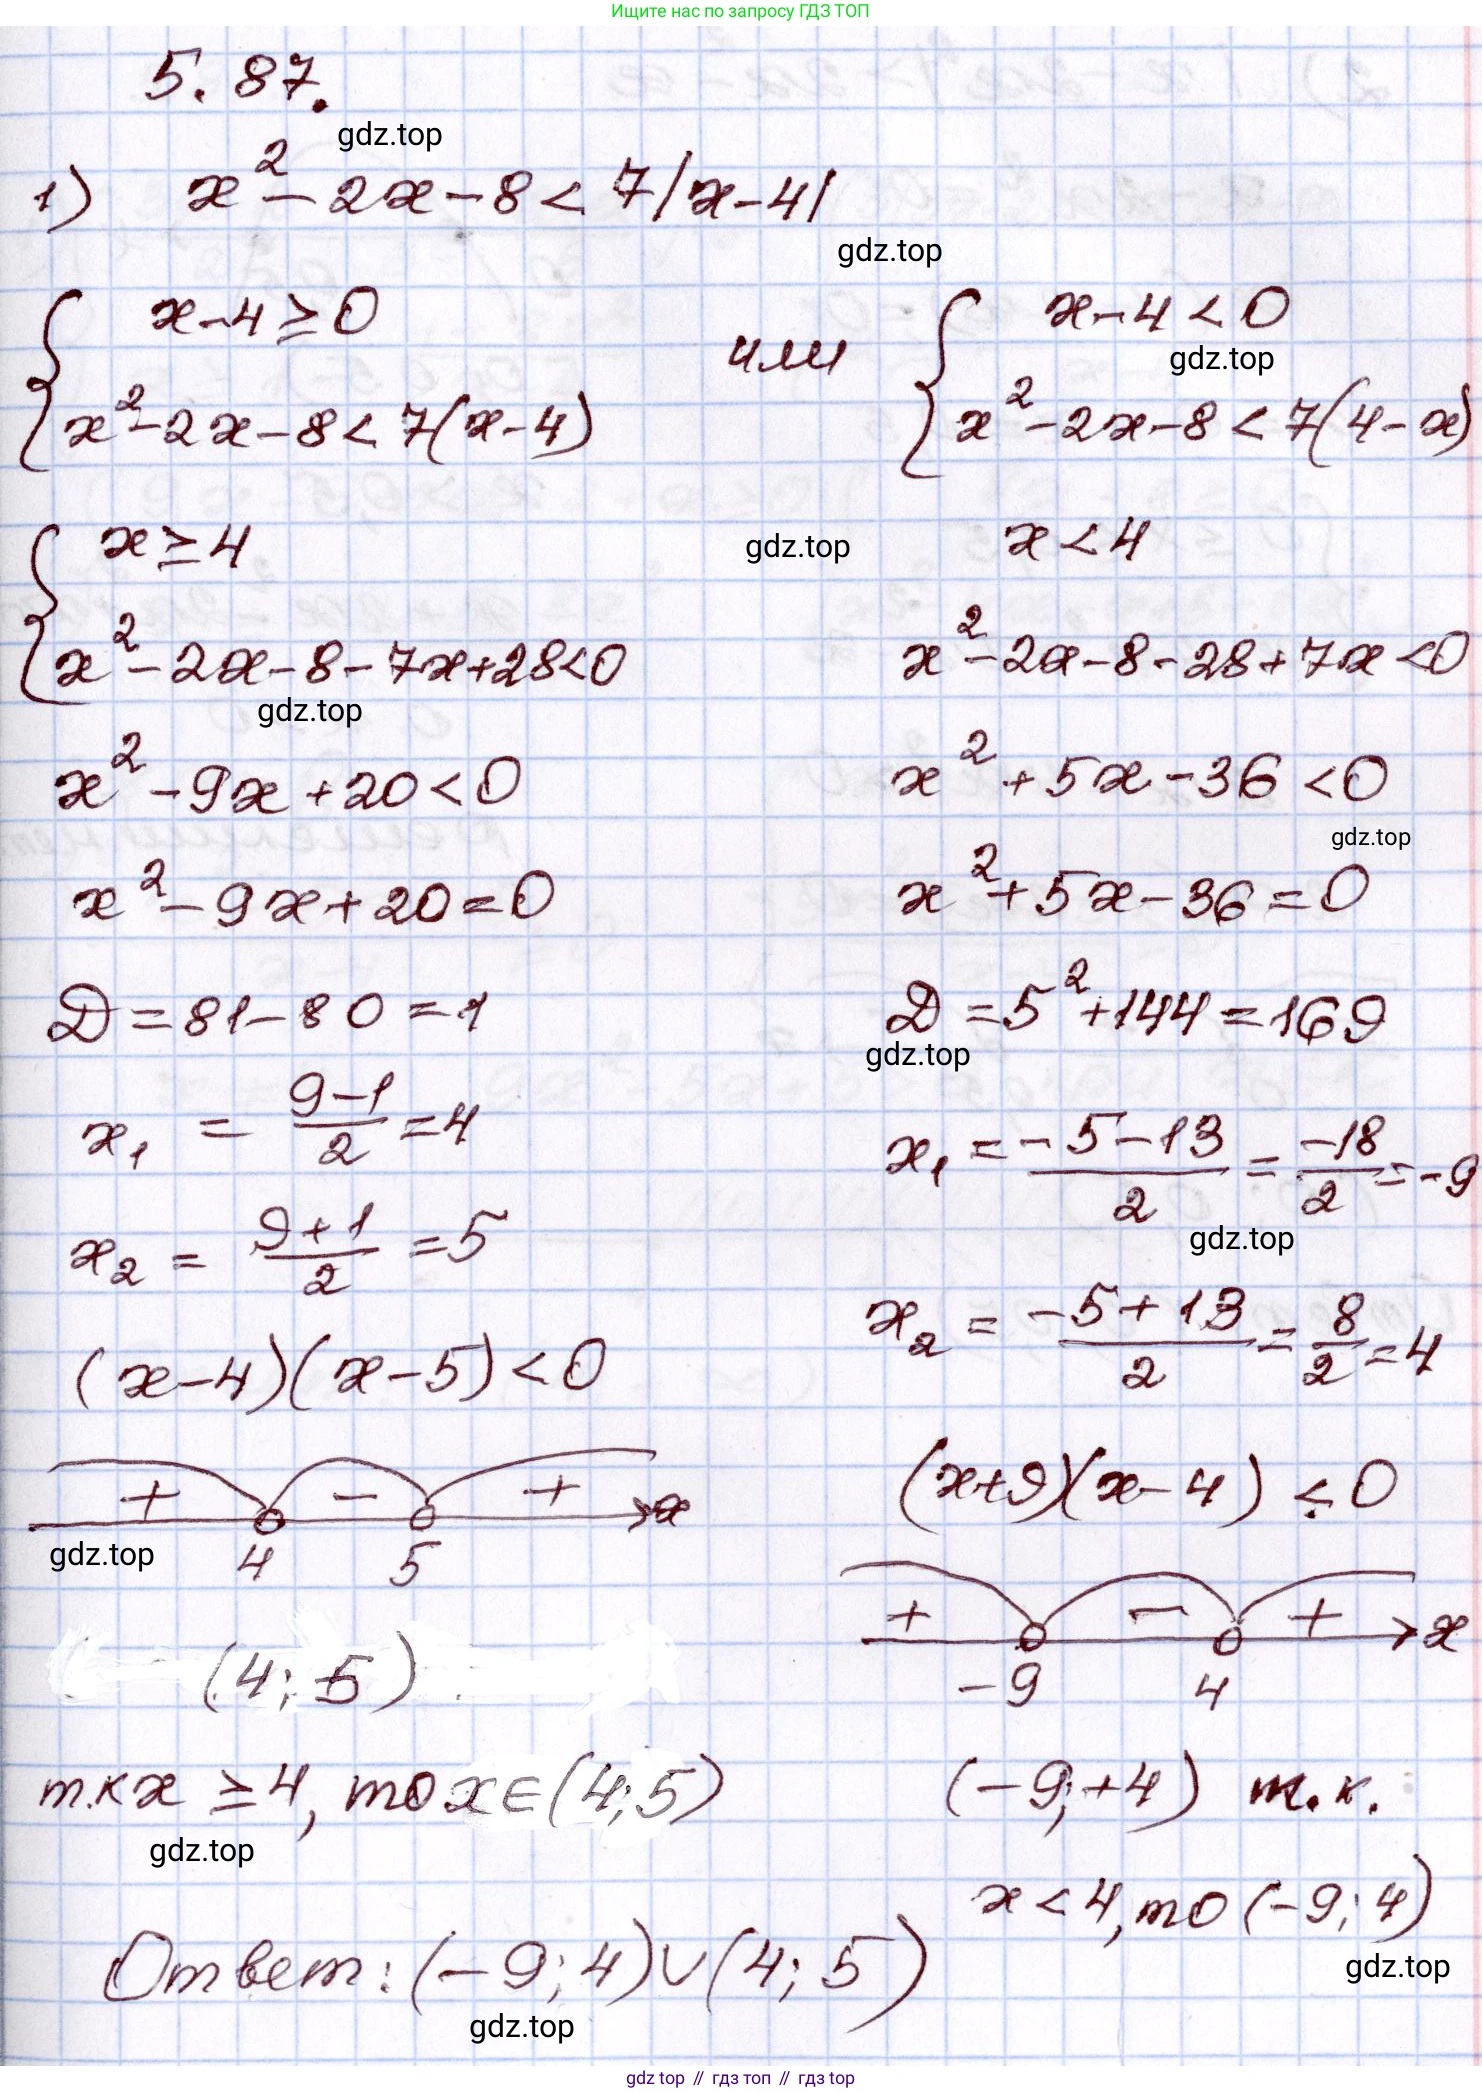 Ищите нас по запросу ГДЗ ТОП
5.87.
gdz.top
1) x² - 2x - 8 < 7|x-4|
gdz.top
x-4 ≥ 0
или
x-4 < 0
gdz.top
x² - 2x - 8 < 7(x-4)
x² - 2x - 8 < 7(4-x)
x ≥ 4
gdz.top
x < 4
x² - 2x - 8 - 7x + 28 < 0
x² - 2x - 8 - 28 + 7x < 0
gdz.top
x² - 9x + 20 < 0
x² + 5x - 36 < 0
gdz.top
x² - 9x + 20 = 0
x² + 5x - 36 = 0
D = 81 - 80 = 1
D = 5² + 144 = 169
gdz.top
x₁ = (9-1)/2 = 4
x₁ = (-5-13)/2 = -18/2 = -9
gdz.top
x₂ = (9+1)/2 = 5
x₂ = (-5+13)/2 = 8/2 = 4
(x-4)(x-5) < 0
(x+9)(x-4) < 0
+ - + x
gdz.top
4 5
+ - + x
-9 4
(4; 5)
т.к x ≥ 4, то x ∈ (4; 5)
gdz.top
(-9; +4) т.к.
x < 4, то (-9; 4)
gdz.top
Ответ: (-9; 4) ∪ (4; 5)
gdz.top
gdz top // гдз топ // гдз top